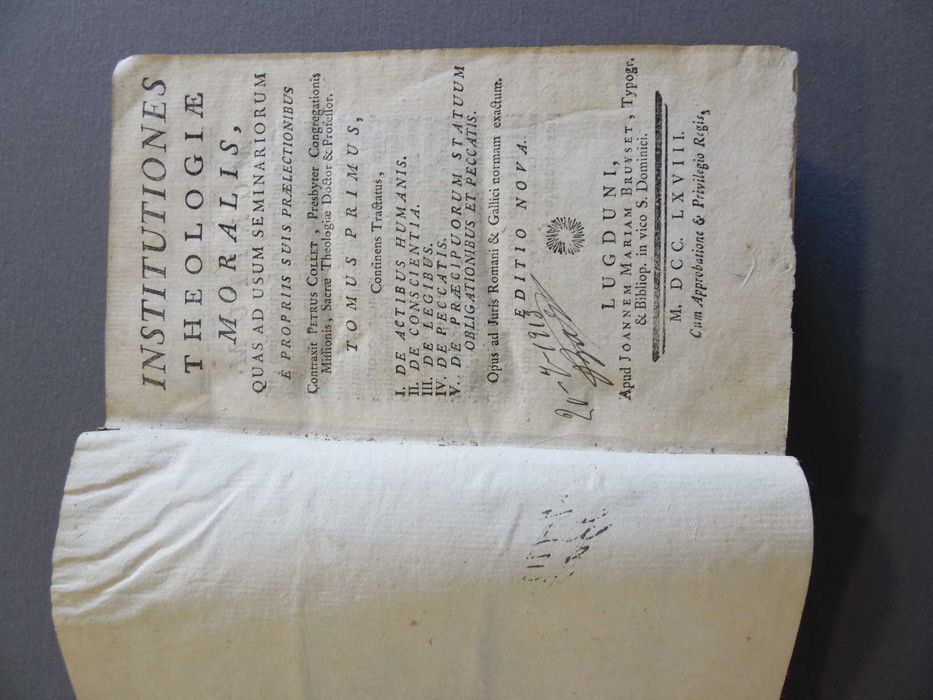 INSTITUTIONES
THEOLOGIÆ
MORALIS,
QUAS AD USUM SEMINARIORUM
È PROPRIIS SUIS PRÆLECTIONIBUS
Contraxit PETRUS COLLET, Presbyter Congregationis
Missionis, Sacræ Theologiæ Doctor & Professor.
TOMUS PRIMUS,
Continens Tractatus,
I. DE ACTIBUS HUMANIS.
II. DE CONSCIENTIA.
III. DE LEGIBUS.
IV. DE PECCATIS.
V. DE PRÆCIPUORUM STATUUM
OBLIGATIONIBUS ET PECCATIS.
Opus ad Juris Romani & Gallici normam exactum.
EDITIO NOVA.
LUGDUNI,
Apud JOANNEM MARIAM BRUYSET, Typogr.
& Bibliop. in vico S. Dominici.
M. DCC. LXVIII.
Cum Approbatione & Privilegio Regis,